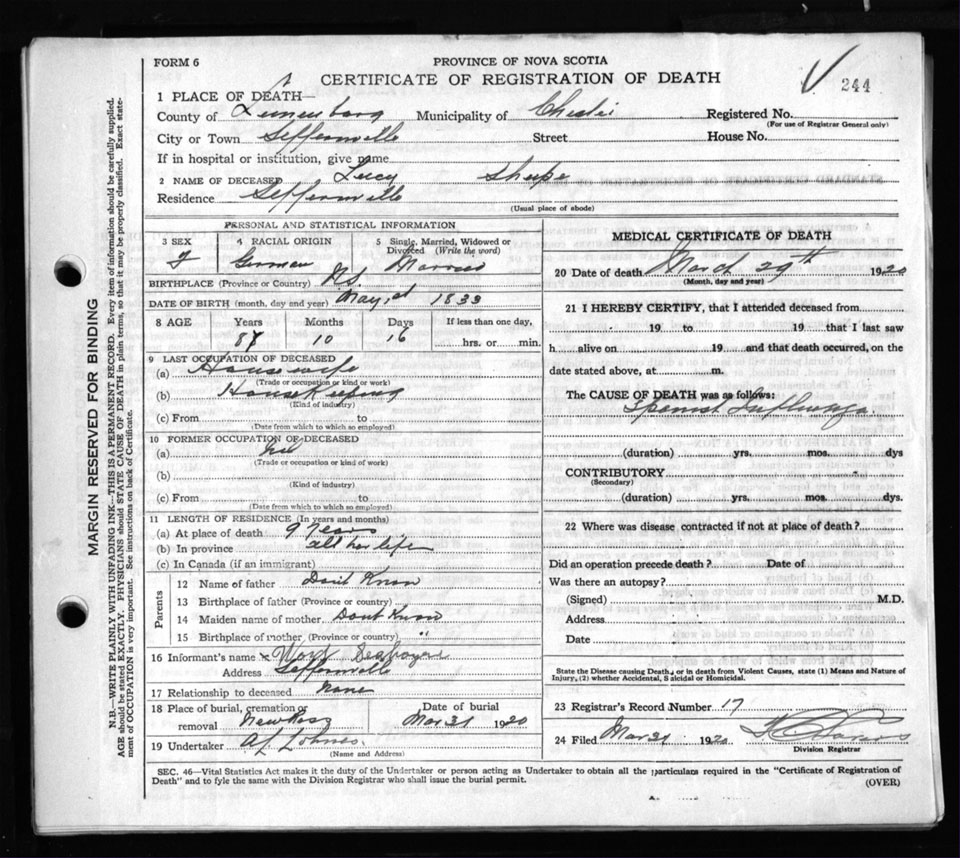 FORM 6
PROVINCE OF NOVA SCOTIA
CERTIFICATE OF REGISTRATION OF DEATH
244
1 PLACE OF DEATH—
County of Lunenburg Municipality of Chester Registered No.
(For use of Registrar General only)
City or Town Seffernville Street House No.
If in hospital or institution, give name
2 NAME OF DECEASED Lucy Shupe
Residence Seffernville
(Usual place of abode)
PERSONAL AND STATISTICAL INFORMATION
3 SEX 4 RACIAL ORIGIN 5 Single, Married, Widowed or Divorced (Write the word)
F German Married
BIRTHPLACE (Province or Country) N.S.
DATE OF BIRTH (month, day and year) May 1833
8 AGE Years Months Days If less than one day,
10 16 hrs. or min.
9 LAST OCCUPATION OF DECEASED
(a) Housewife
(Trade or occupation or kind or work)
(b) House Keeping
(Kind of industry)
(c) From to
(Date from which to which so employed)
10 FORMER OCCUPATION OF DECEASED
(a)
(Trade or occupation or kind of work)
(b)
(Kind of industry)
(c) From to
(Date from which to which so employed)
11 LENGTH OF RESIDENCE (In years and months)
(a) At place of death 9 Years
(b) In province all her life
(c) In Canada (if an immigrant)
Parents
12 Name of father Dont Know
13 Birthplace of father (Province or country)
14 Maiden name of mother Dont Know
15 Birthplace of mother (Province or country) "
16 Informant's name
Address Seffernville
17 Relationship to deceased None
18 Place of burial, cremation or removal New Ross Date of burial Mar 31 1920
19 Undertaker
(Name and Address)
MEDICAL CERTIFICATE OF DEATH
20 Date of death March 29th 1920
(Month, day and year)
21 I HEREBY CERTIFY, that I attended deceased from
19 to 19 that I last saw
h alive on 19 and that death occurred, on the
date stated above, at m.
The CAUSE OF DEATH was as follows:
Spanish Influenza
(duration) yrs. mos. dys
CONTRIBUTORY
(Secondary)
(duration) yrs. mos. dys.
22 Where was disease contracted if not at place of death?
Did an operation precede death? Date of
Was there an autopsy?
(Signed) M.D.
Address
Date
State the Disease causing Death, or in death from Violent Causes, state (1) Means and Nature of
Injury, (2) whether Accidental, Suicidal or Homicidal.
23 Registrar's Record Number 17
24 Filed Mar 31 1920
Division Registrar
SEC. 46—Vital Statistics Act makes it the duty of the Undertaker or person acting as Undertaker to obtain all the particulars required in the "Certificate of Registration of
Death" and to fyle the same with the Division Registrar who shall issue the burial permit.
(OVER)
MARGIN RESERVED FOR BINDING
N.B.—WRITE PLAINLY WITH UNFADING INK—THIS IS A PERMANENT RECORD. Every item of information should be carefully supplied.
AGE should be stated EXACTLY. PHYSICIANS should STATE CAUSE OF DEATH in plain terms, so that it may be properly classified. Exact state-
ment of OCCUPATION is very important. See instructions on back of Certificate.